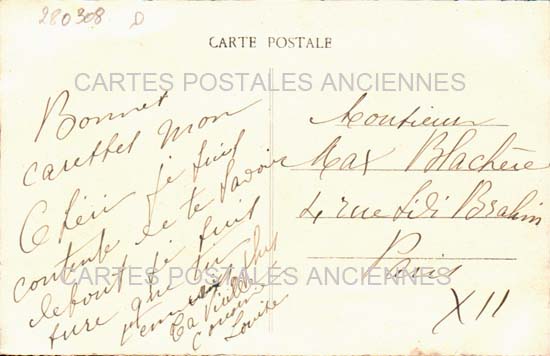 280308 D
CARTE POSTALE
CARTES POSTALES ANCIENNES
Bonnes
caresses mon
Chéri je suis
contente de te savoir
debout je suis
sure que tu
Ta vieille
cousine
Louise
Monsieur
Max Blachère
4 rue Sidi Brahim
Paris
XII
CARTES POSTALES ANCIENNES